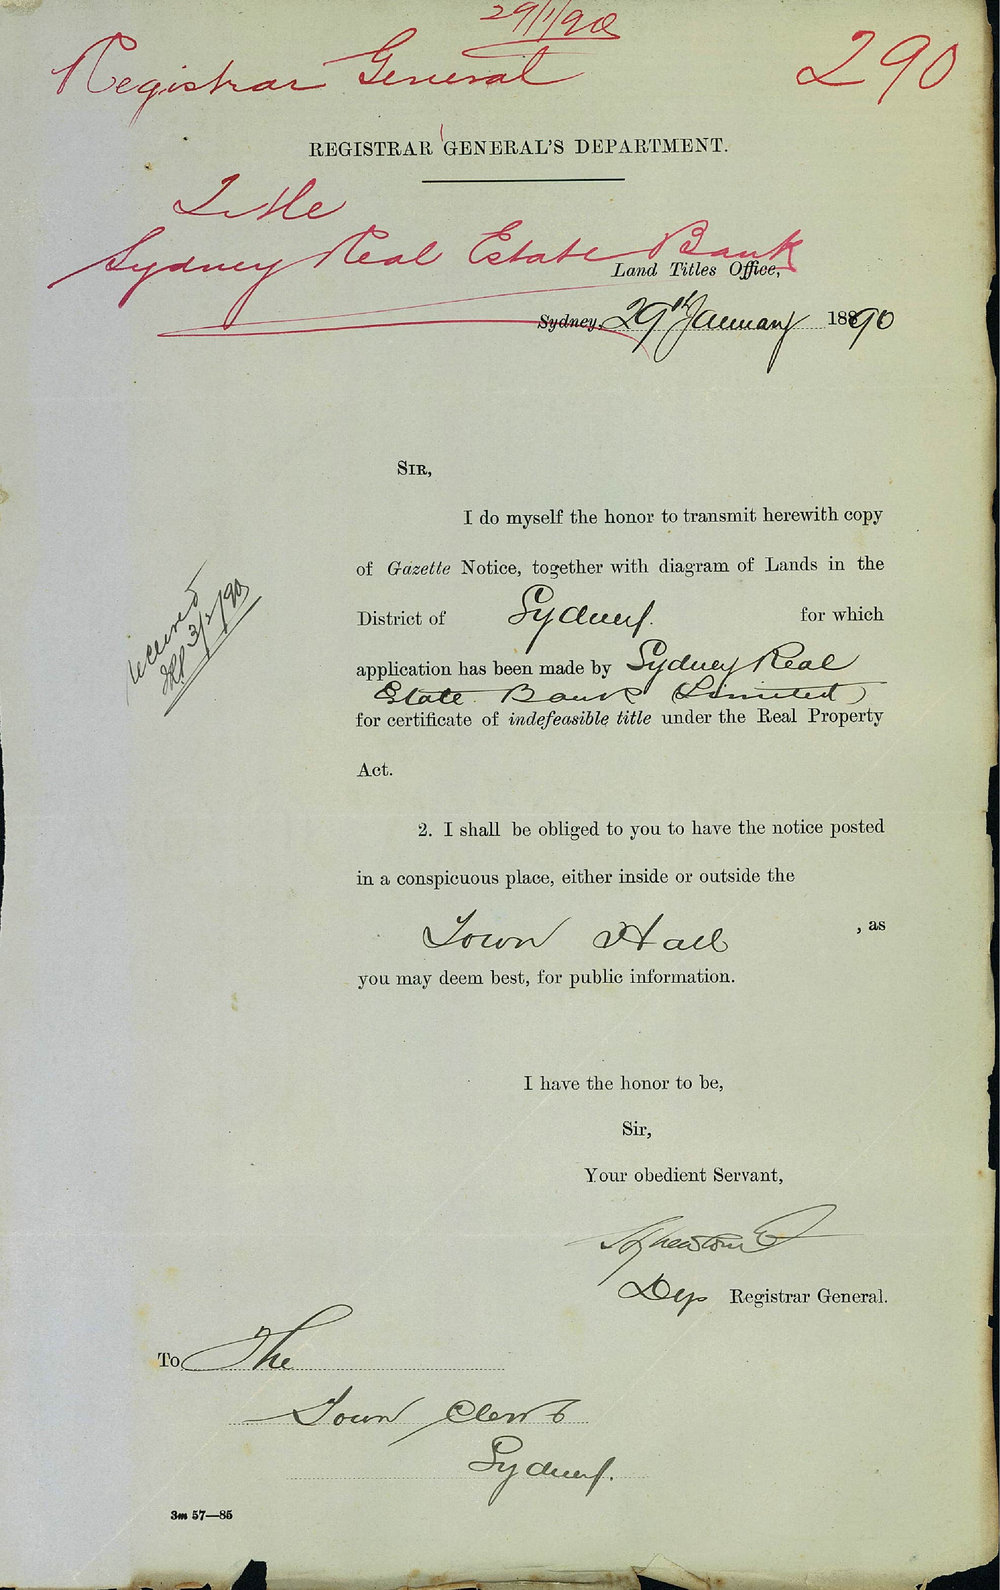 29/1/90
Registrar General 290
REGISTRAR GENERAL'S DEPARTMENT.
Title
Sydney Real Estate Bank
Land Titles Office,
Sydney, 29th January 18890
SIR,
I do myself the honor to transmit herewith copy
of Gazette Notice, together with diagram of Lands in the
District of Sydney. for which
application has been made by Sydney Real
Estate Bank (Limited)
for certificate of indefeasible title under the Real Property
Act.
received
3/2/90
2. I shall be obliged to you to have the notice posted
in a conspicuous place, either inside or outside the
Town Hall , as
you may deem best, for public information.
I have the honor to be,
Sir,
Your obedient Servant,
Dep Registrar General.
To The
Town Clerk
Sydney.
3m 57—85